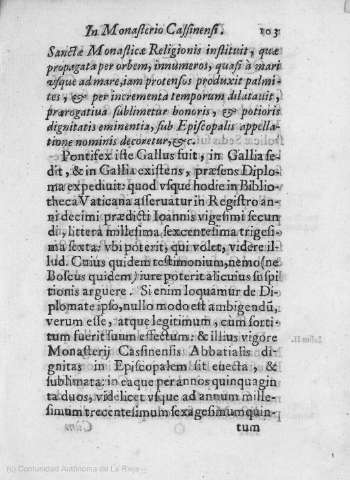 In Monasterio Cassinensi. 103
Sanctæ Monasticæ Religionis instituit, quæ
propagata per orbem, innumeros, quasi à mari
vsque ad mare, iam protensos produxit palmi-
tes, & per incrementa temporum dilatauit,
prærogatiua sublimetur honoris, & potioris
dignitatis eminentia, sub Episcopalis appella-
tione nominis decoretur, &c.
Pontifex iste Gallus fuit, in Gallia se-
dit, & in Gallia existens, præsens Diplo-
ma expediuit: quod vsque hodie in Biblio-
theca Vaticana asseruatur in Registro an-
ni decimi prædicti Ioannis vigesimi secun
di, littera millesima, sexcentesima trigesi-
ma sexta: vbi poterit, qui volet, videre il-
lud. Cuius quidem testimonium, nemo (ne
Boscus quidem) iure poterit alicuius suspi
tionis arguere. Si enim loquamur de Di-
plomate ipso, nullo modo est ambigendũ,
verum esse, atque legitimum, cum sorti-
tum fuerit suum effectum: & illius vigore
Monasterij Cassinensis Abbatialis di-
gnitas in Episcopalem sit euecta, &
sublimata: in eaque per annos quinquagin
ta duos, videlicet vsque ad annum mille-
simum trecentesimum sexagesimum quin-
tum
(c) Comunidad Autónoma de La Rioja